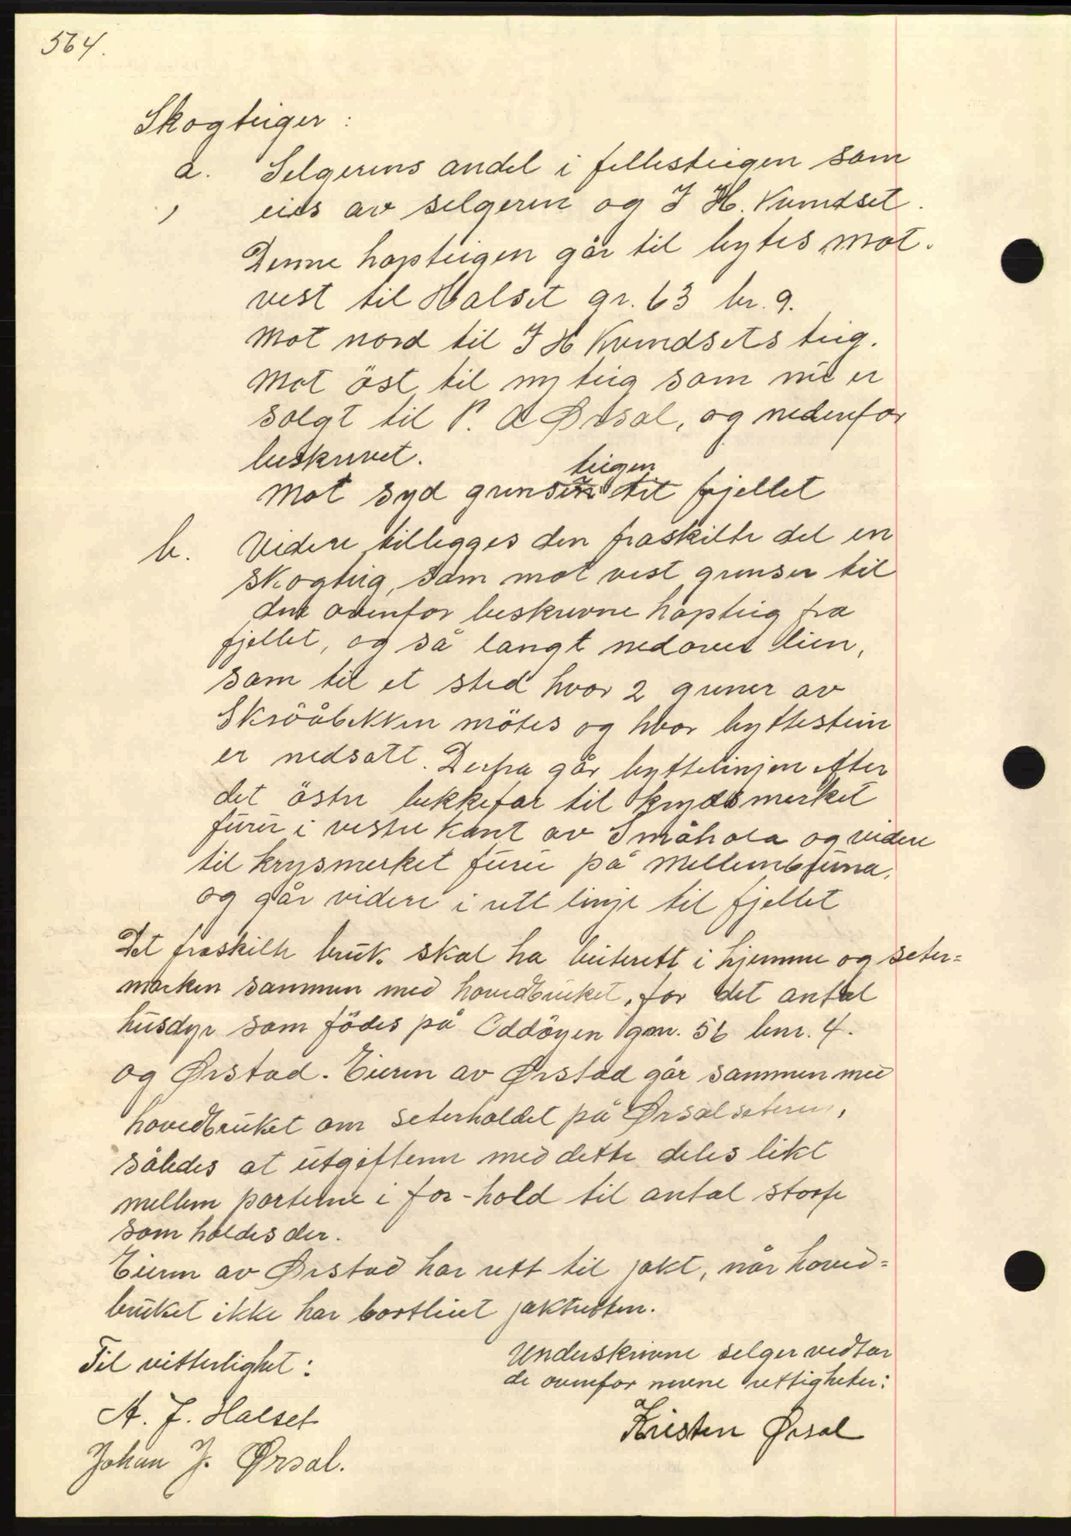 564.
Skogteiger:
a. Selgerens andel i fellesteigen som
eies av selgeren og J H. Kvendset.
Denne hopteigen går til bytes mot.
vest til Halset gr. 63 br. 9.
Mot nord til J H Kvendsets teig.
Mot öst til ny teig som nu er
solgt til P. A Ørsal, og nedenfor
beskrevet.
teigen
Mot syd grenser til fjellet
b. Videre tillegges den fraskilte del en
skogteig, som mot vest grenser til
den ovenfor beskrevne hopteig fra
fjellet, og så langt nedover lien,
som til et sted hvor 2 grener av
Skrööbekken mötes og hvor byttestein
er nedsatt. Derfra går byttelinjen efter
det östre bekkefar til krydsmerket
furu i vestre kant av Småhola og videre
til krysmerket furu på Mellembfurua,
og går videre i rett linje til fjellet
Det fraskilte bruk. skal ha beiterett i hjemme og seter=
marken sammen med hovedbruket, for det antal
husdyr som födes på Oddöyen gnr. 56 bnr. 4.
og Ørstad. Eieren av Ørstad går sammen med
hovedbruket om seterholdet på Ørsalseteren,
således at utgiftene med dette deles likt
mellem partene i for-hold til antal storfe
som holdes der.
Eieren av Ørstad har rett til jakt, når hoved=
bruket ikke har bortleiet jaktretten.
Underskrivne selger vedtar
de ovenfor nevne rettigheter:
Kristen Ørsal
Til vitterlighet:
A. J. Halset
Johan J. Ørsal.